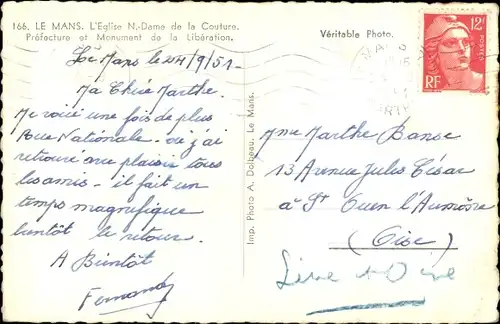 166. LE MANS. L'Eglise N.-Dame de la Couture.
Préfecture et Monument de la Libération.
Véritable Photo.
12F
POSTES
RF
Le Mans le 24/9/51-
Ma Chère Marthe.
Me voici une fois de plus
Rue Nationale - où j'ai
retrouvé avec plaisir tous
les amis - il fait un
temps magnifique
bientôt le retour.
A Bientôt
Fernand
Imp. Photo A. Dolbeau, Le Mans.
Mme Marthe Banse
13 Avenue Jules César
à St Ouen l'Aumône
(Oise)
Seine et Oise